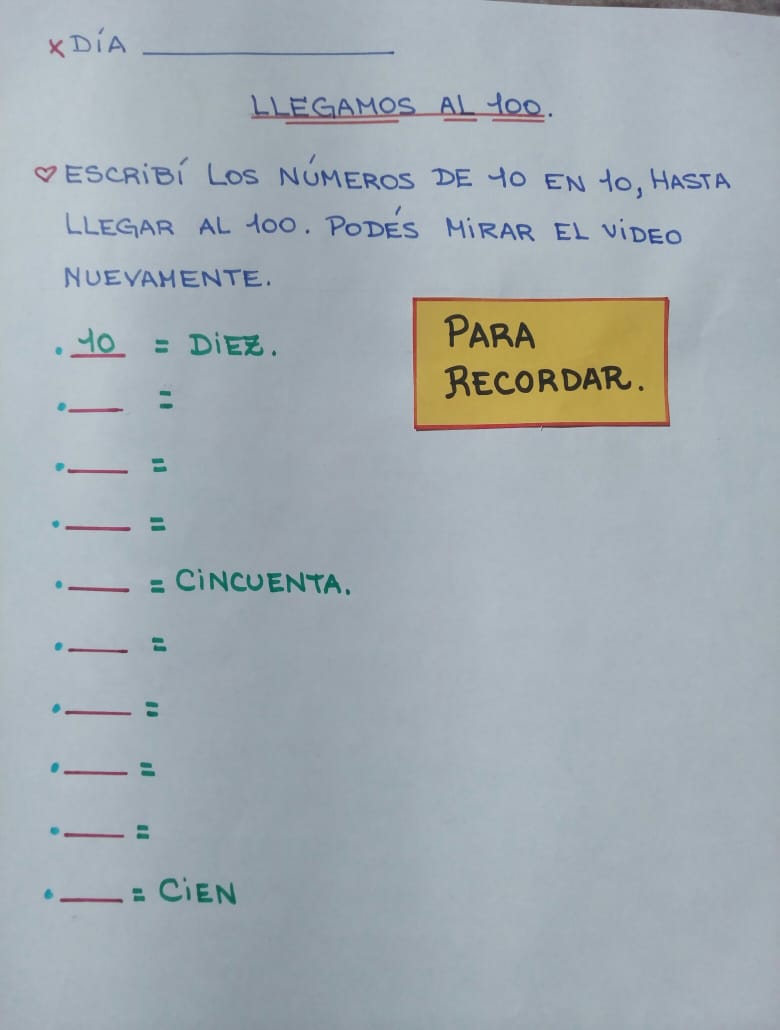 x DÍA ____________
LLEGAMOS AL 100.
♡ ESCRIBÍ LOS NÚMEROS DE 10 EN 10, HASTA
LLEGAR AL 100. PODÉS MIRAR EL VIDEO
NUEVAMENTE.
. 10 = DIEZ.
PARA
RECORDAR.
. ____ =
. ____ =
. ____ =
. ____ = CINCUENTA.
. ____ =
. ____ =
. ____ =
. ____ =
. ____ = CIEN